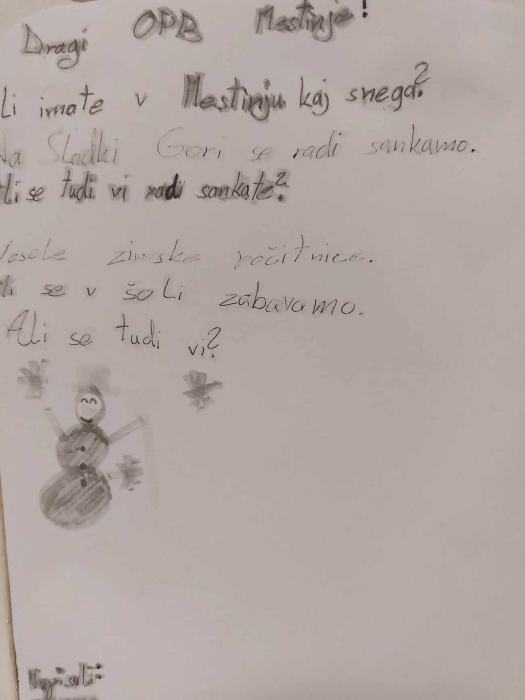 Dragi OPB Mestinje!
li imate v Mestinju kaj snega?
Na Sladki Gori se radi sankamo.
Ali se tudi vi radi sankate?
Vesele zimske počitnice.
Mi se v šoli zabavamo.
Ali se tudi vi?
Napisali: